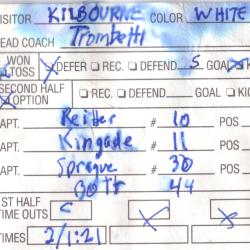 VISITOR KILBOURNE COLOR WHITE
EAD COACH Trombetti
WON TOSS X DEFER REC. DEFEND 5 GOAL K
SECOND HALF OPTION REC. DEFEND GOAL KIC
APT. Reiter # 10 POS
APT. Kingade # 11 POS
APT. Sprague # 30 POS
Bott 44
ST HALF TIME OUTS X X
TIMES 2/1:21